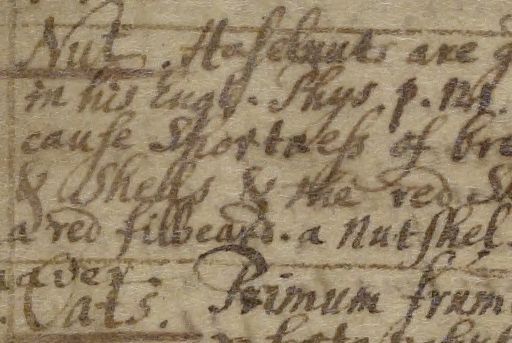 Nut. Haselnuts are g
in his Engl. Phys. p. 121.
cause Shortness of bre
& Shells & the red S
a red filbeard. a Nutshel.
aver.
Oats. Primum frum